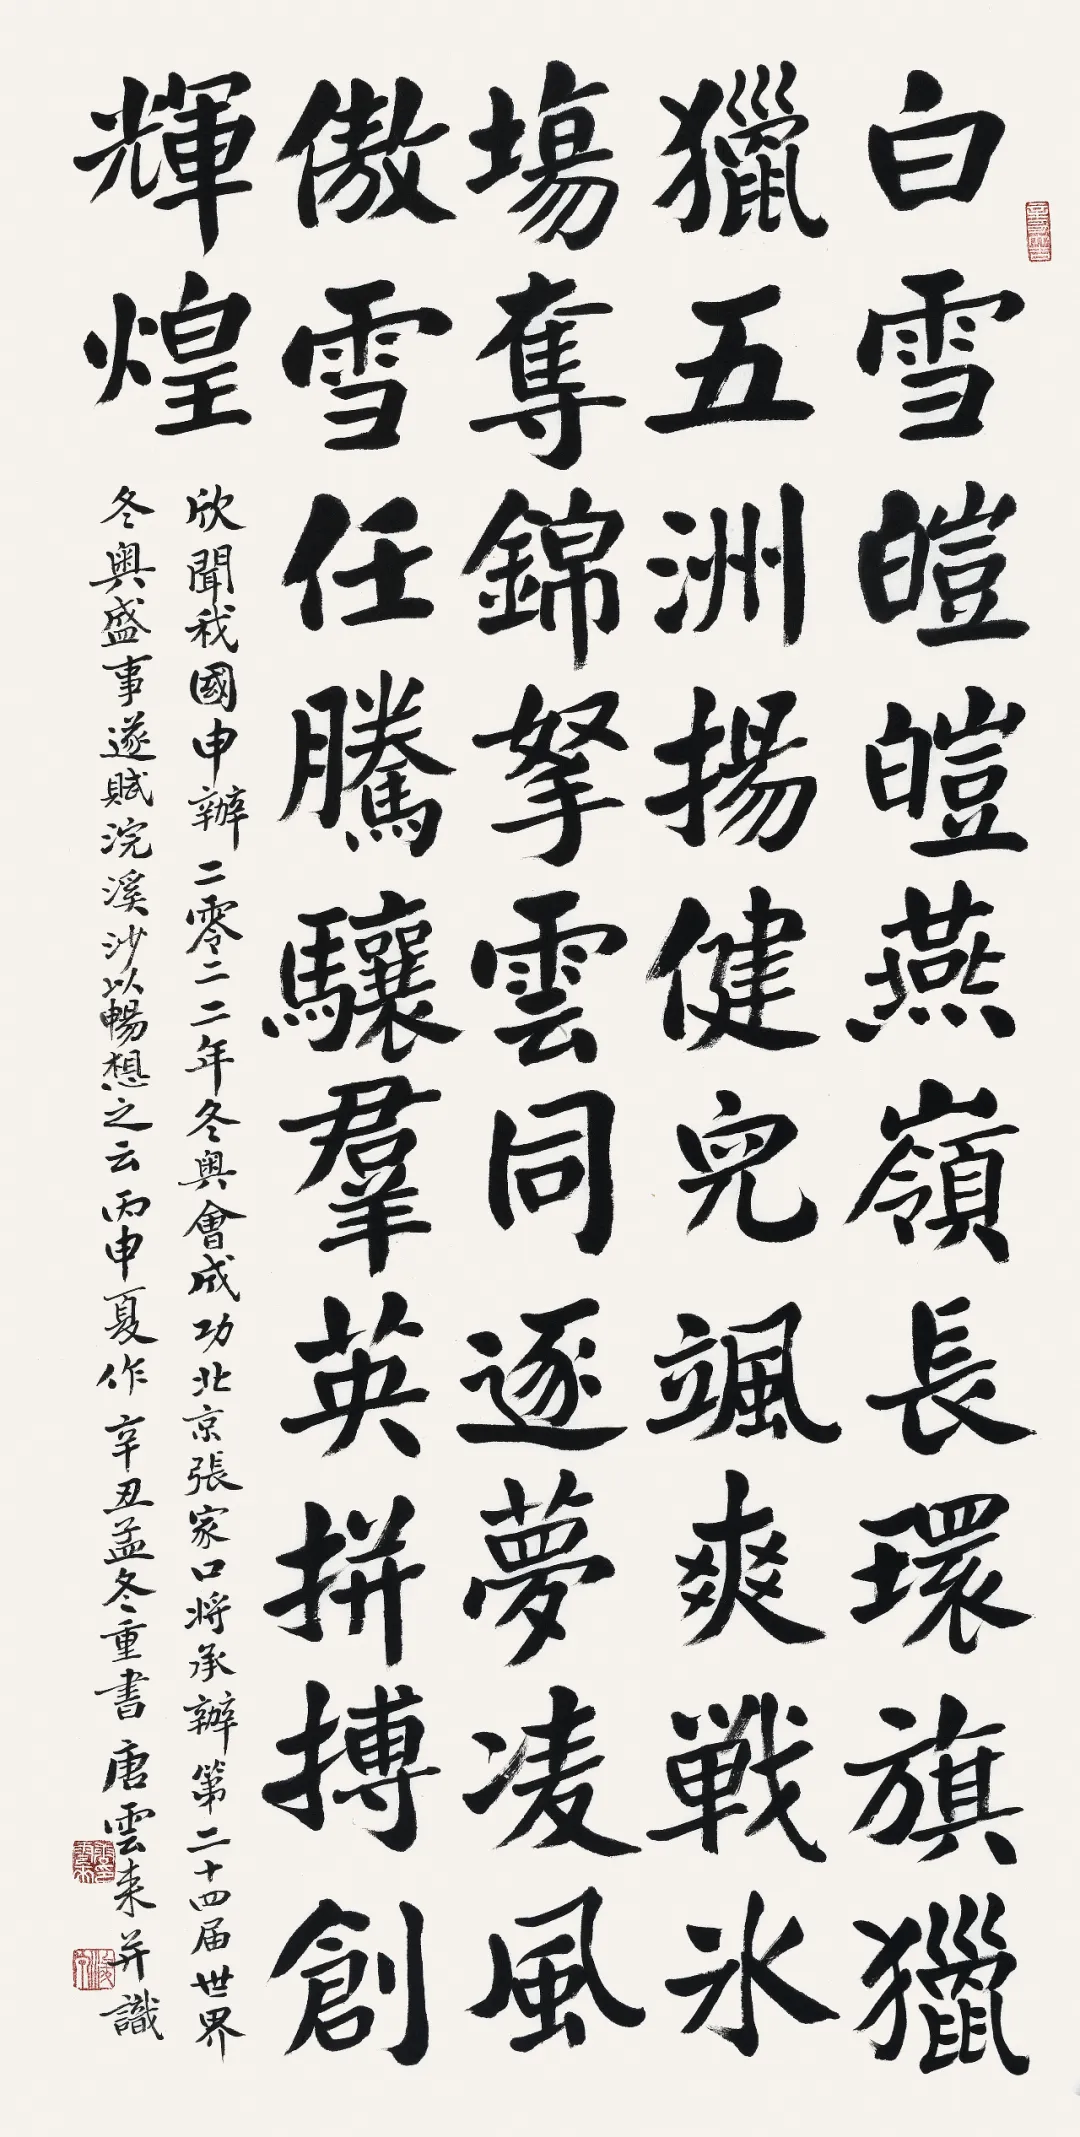 白雪皚皚燕嶺長環旗獵
獵五洲揚健兒颯爽戰冰
場奪錦拏雲同逐夢凌風
傲雪任騰驤羣英拼搏創
輝煌
欣聞我國申辦二零二二年冬奧會成功北京張家口將承辦第二十四届世界
冬奧盛事遂賦浣溪沙以暢想之云丙申夏作辛丑孟冬重書唐雲来并識